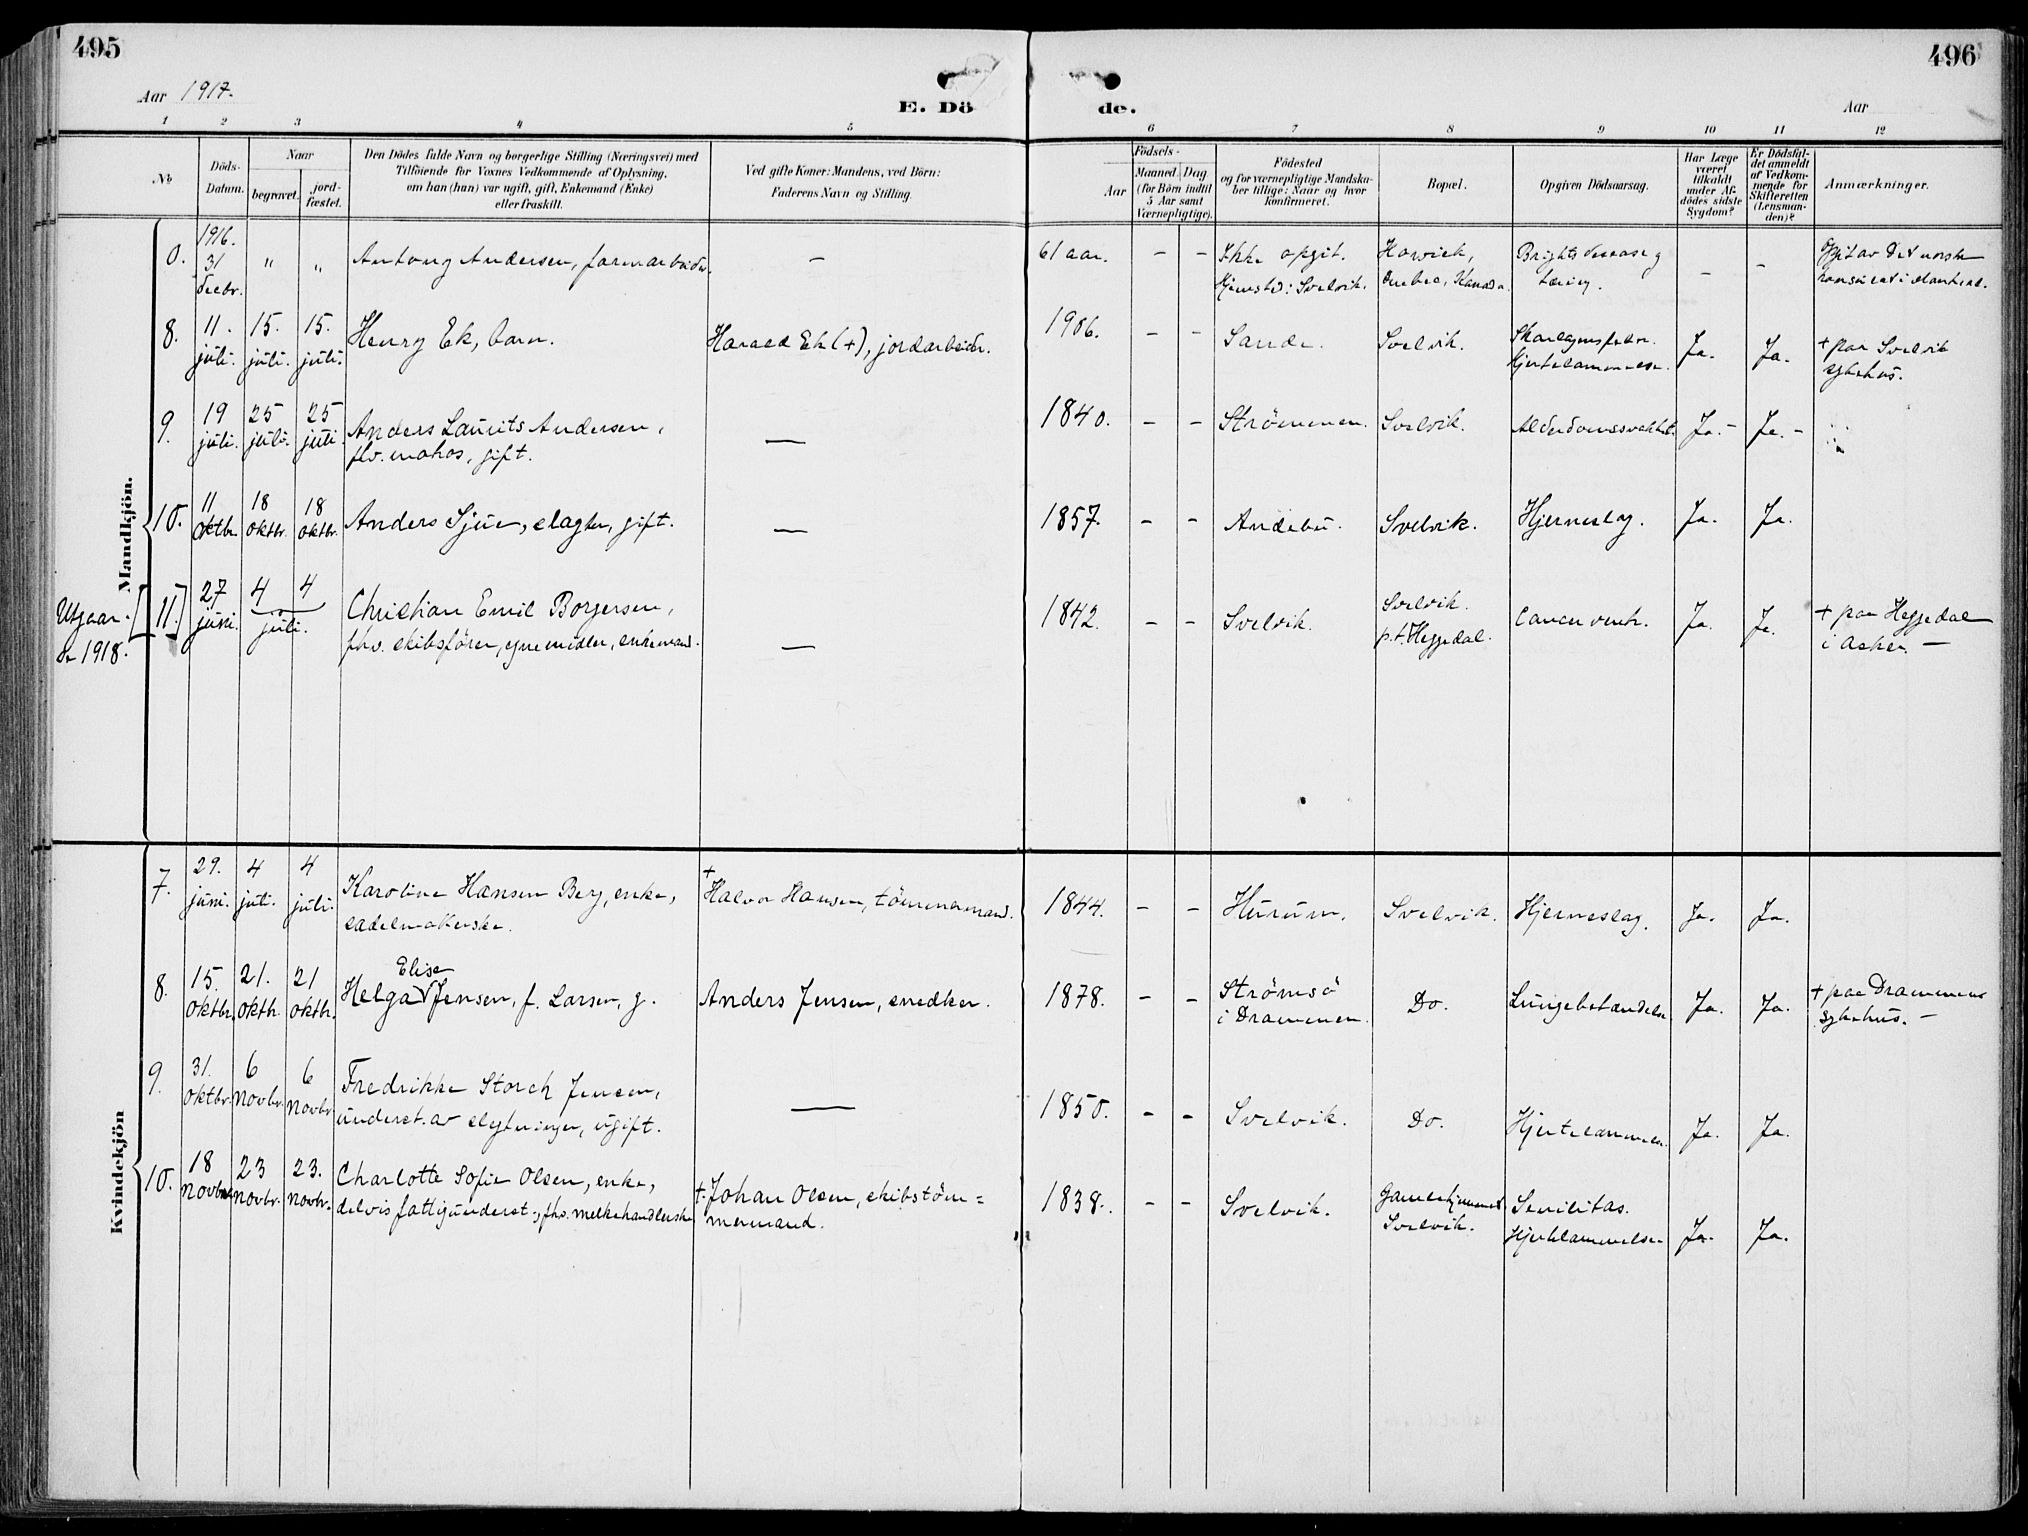 495
496
Aar 1917.
E. Dö
de.
Aar
1 2 3 4 5 6 7 8 9 10 11 12
No
Döds-
Datum.
Naar
begravet.
jord-
fæstet.
Den Dödes fulde Navn og borgerlige Stilling (Næringsvei) med
Tilföiende for Voxnes Vedkommende af Oplysning,
om han (hun) var ugift, gift, Enkemand (Enke)
eller fraskilt.
Ved gifte Koner: Mandens, ved Börn:
Faderens Navn og Stilling.
Födsels-
Aar
Maaned. Dag
(for Börn indtil
5 Aar samt
Værnepligtige).
Födested
og for værnepligtige Mandska-
ber tillige: Naar og hvor
konfirmeret.
Bopæl.
Opgiven Dödsaarsag.
Har Læge
været
tilkaldt
under Af-
dödes sidste
Sygdom?
Er Dödsfal-
det anmeldt
af Vedkom-
mende for
Skifteretten
(Lensman-
den)?
Anmærkninger.
Mandkjön.
0. 1916. 31 decbr. " " Antony Andersen, farmarbeider. — 61 aar. - - Ikke opgit. Hjemsted: Svelvik. Howick, Quebec, Kanada. Brights desease og tæring. - - Opgit av Det norske konsulat i Montreal.
8. 11. juli. 15. juli. 15. juli. Henry Ek, barn. Harald Ek (+), jordarbeider. 1906. - - Sande. Svelvik. Skarlagensfeber. Hjertelammelse. Ja. Ja. + paa Svelvik sykehus.
9. 19 juli. 25 juli. 25 juli. Anders Laurits Andersen, fhv. matros, gift. — 1840. - - Strömmen. Svelvik. Alderdomssvakhet. Ja.- Ja.-
10. 11 oktbr. 18 oktbr. 18 oktbr. Anders Sjue, slagter, gift. — 1857. - - Andebu. Svelvik. Hjerneslag. Ja. Ja.
Utgaar.
1918.
[11.] 27 juni. 4 4 juli. Christian Emil Borgersen, fhv. skibsförer, egne midler, enkemand. — 1842. - - Svelvik. Svelvik. p.t. Heggedal. Cancer ventr. Ja. Ja. + paa Heggedal i Asker. —
Kvindekjön
7. 29. juni. 4 juli. 4 juli. Karoline Hansen Berg, enke, sadelmakerske. + Halvor Hansen, tömmermand. 1844. - - Hurum. Svelvik. Hjerneslag. Ja. Ja.
8. 15. oktbr. 21. oktbr. 21 oktbr. Helga Elise Jensen, f. Larsen, g. Anders Jensen, snedker. 1878. - - Strömsö i Drammen. Do. Lungebetændelse Ja. Ja. + paa Drammens sykehus. —
9. 31. oktbr. 6 novbr. 6 novbr. Fredrikke Storch Jensen, underst. av slegtninger, ugift. — 1850. - - Svelvik. Do. Hjertelammelse. Ja. Ja.
10. 18 novbr. 23 novbr. 23. novbr. Charlotte Sofie Olsen, enke, delvis fattigunderst., fhv. melkehandlerske + Johan Olsen, skibstöm= mermand. 1838. - - Svelvik. Gamlehjemmet Svelvik. Senilitas. Hjertelammelse. Ja. Ja.